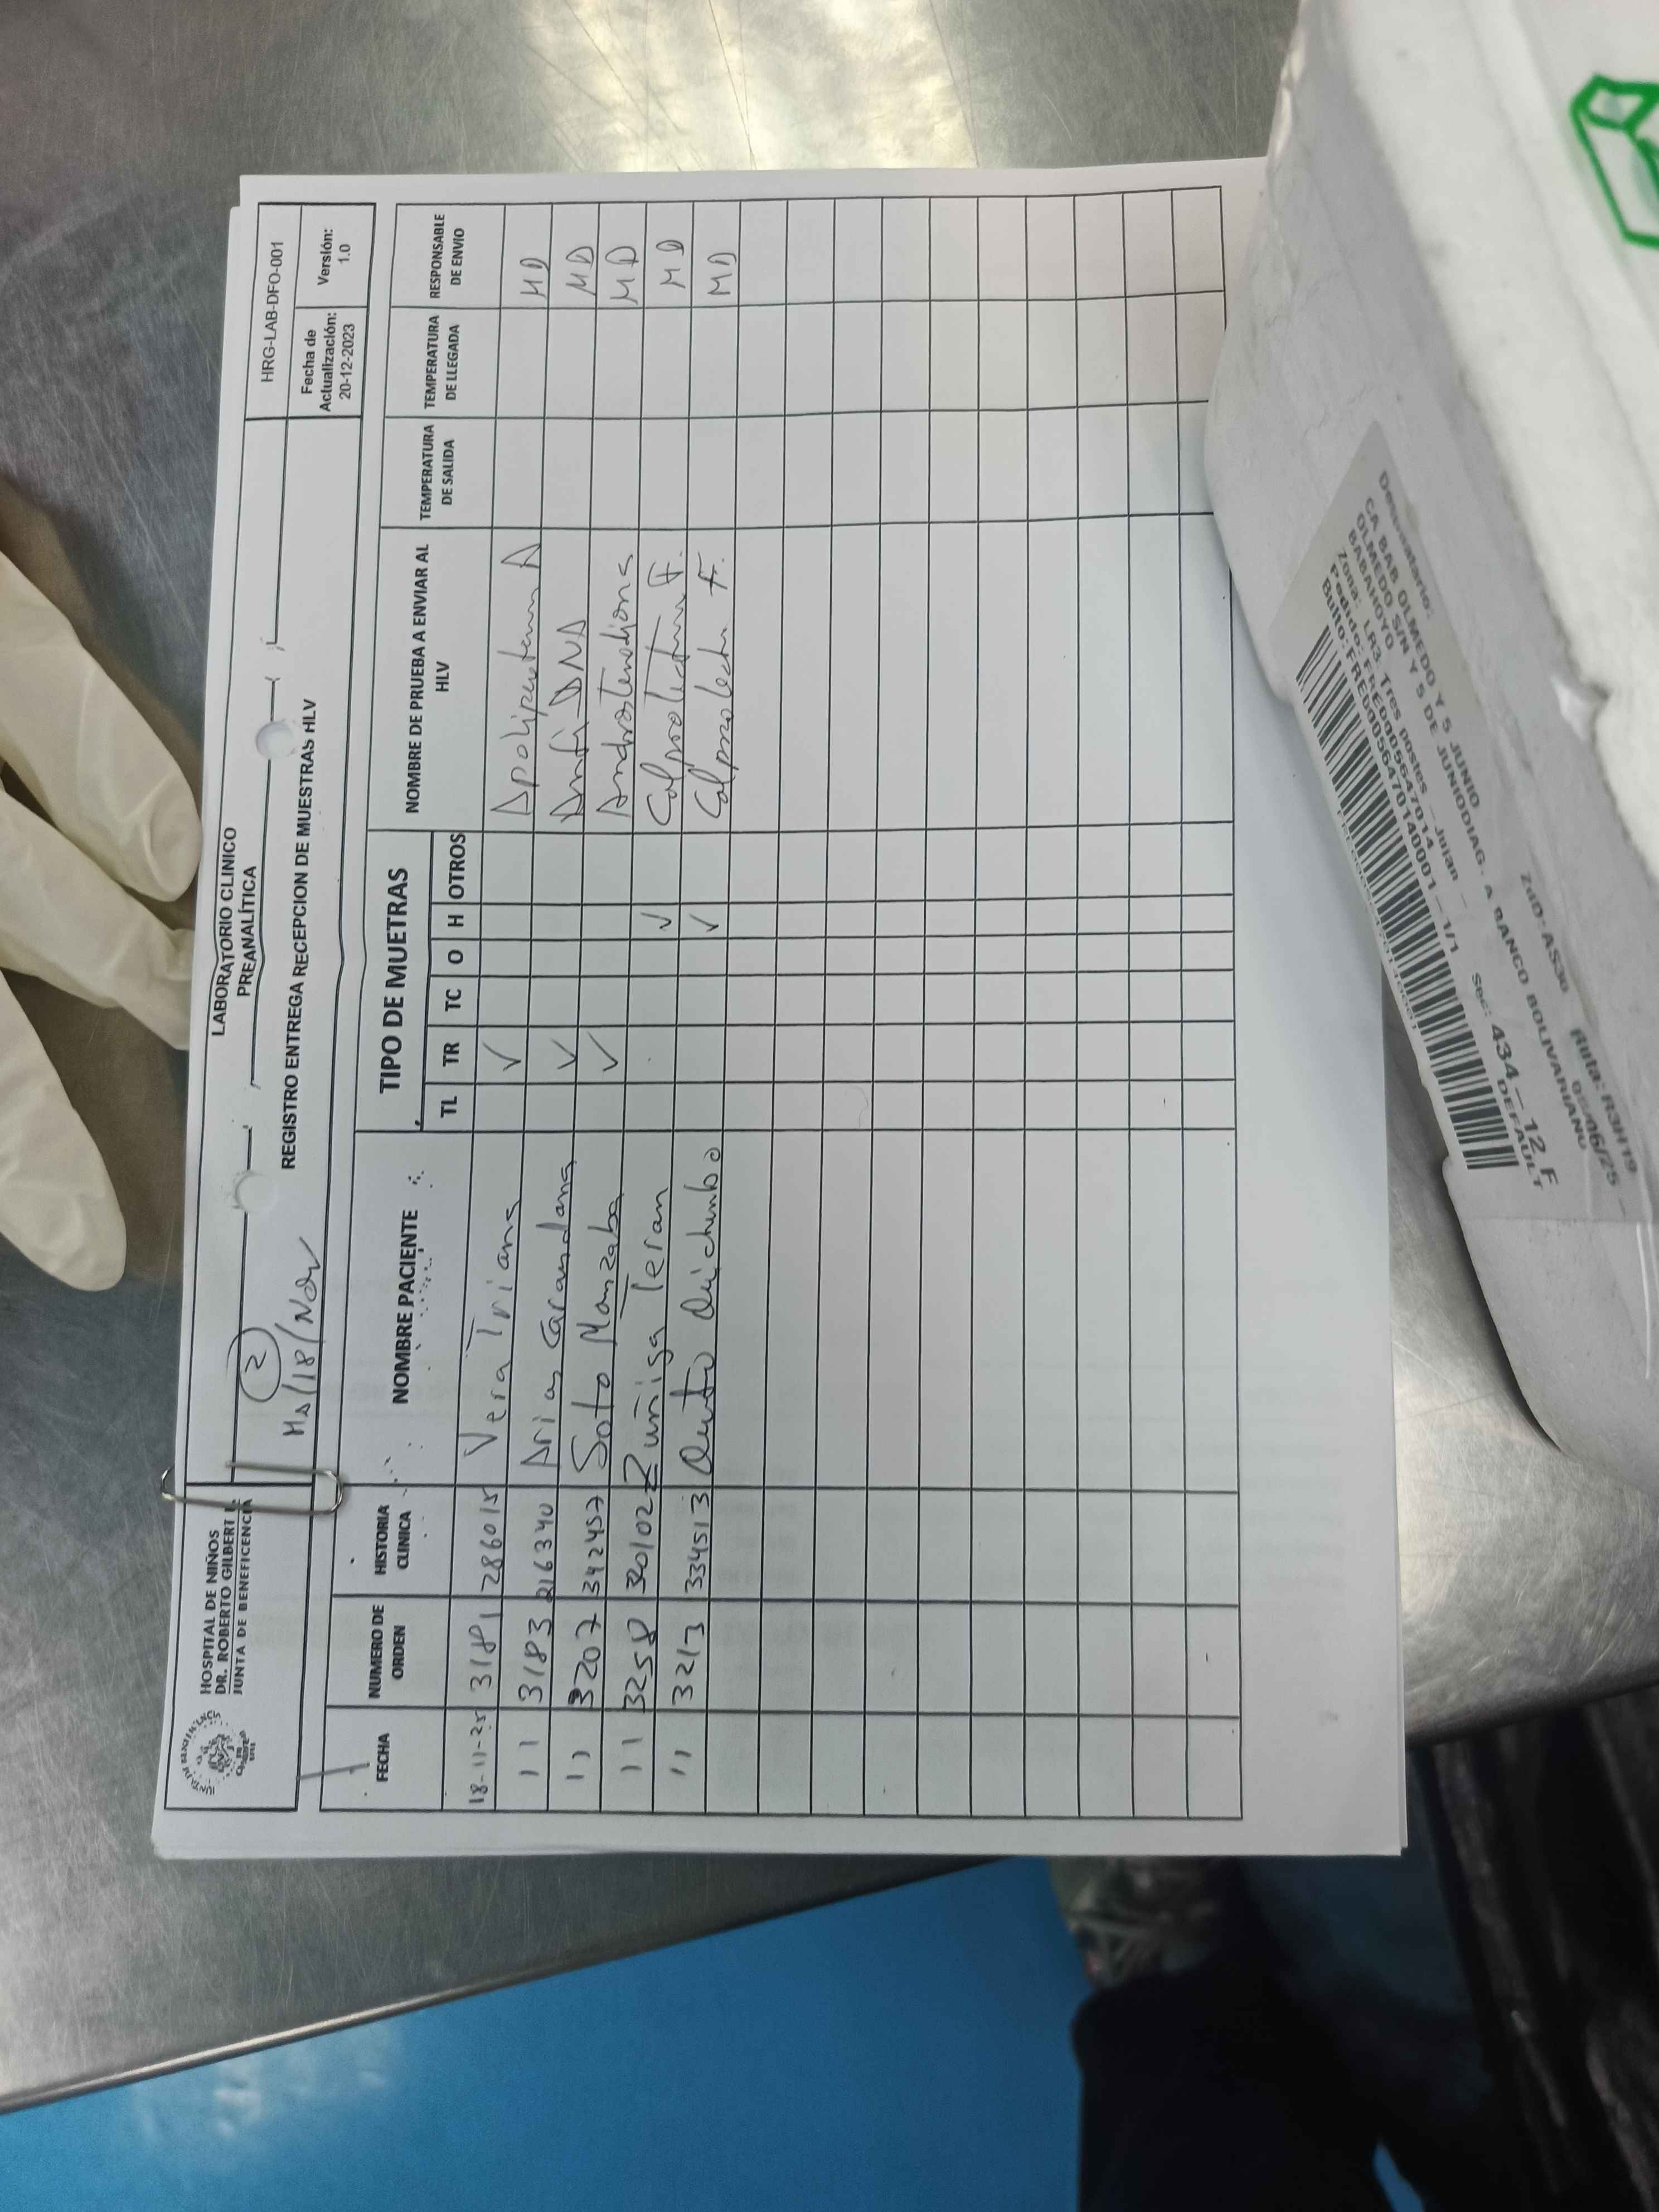 HOSPITAL DE NIÑOS
DR. ROBERTO GILBERT E.
JUNTA DE BENEFICENCIA
LABORATORIO CLINICO
PREANALÍTICA
HRG-LAB-DFO-001
2
Ms/18/Nov
REGISTRO ENTREGA RECEPCION DE MUESTRAS HLV
Fecha de Actualización: 20-12-2023
Versión: 1.0
FECHA NUMERO DE ORDEN HISTORIA CLINICA NOMBRE PACIENTE TIPO DE MUETRAS NOMBRE DE PRUEBA A ENVIAR AL HLV TEMPERATURA DE SALIDA TEMPERATURA DE LLEGADA RESPONSABLE DE ENVIO
TL TR TC O H OTROS
18-11-25 3181 286015 Vera Triana ✓ Apolipoproteina A MD
11 3183 216340 Arias ✓ Anti DNA MD
11 3207 342457 Soto Manzaba ✓ Androstenediona MD
11 3258 320102 Zuñiga Teran ✓ Calprotectina F. MD
11 3213 334513 ✓ F. MD
Destinatario:
CA BAB OLMEDO Y 5 JUNIO
OLMEDO S/N Y 5 DE JUNIODIAG. A BANCO BOLIVARIANO
BABAHOYO
Zona: LR3 Tres postes - Jujan -
Pedido: FRED005647014
Bulto:FRED0056470140001 - 1/1
ZdD: AS30
Sec: 434 - 12 F
DEFAULT
Ruta: R3H19